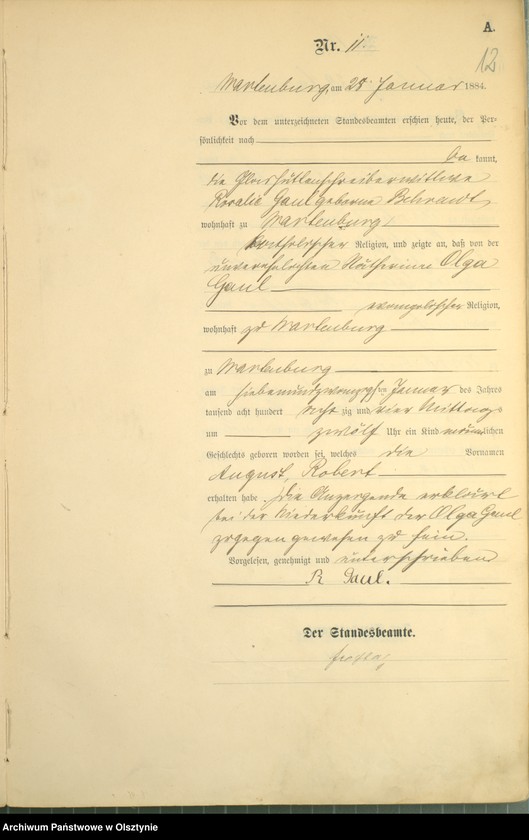 A.
Nr. 11
12
Wartenburg, am 28. Januar 1884.
Vor dem unterzeichneten Standesbeamten erschien heute, der Per-
sönlichkeit nach
be kannt,
die Glashüttenschreiberwittwe
Rosalie Gaul geborne Behrendt
wohnhaft zu Wartenburg,
katholischer Religion, und zeigte an, daß von der
unverehelichten Nätherin Olga
Gaul
evangelischer Religion,
wohnhaft zu Wartenburg
zu Wartenburg
am siebenundzwanzigsten Januar des Jahres
tausend acht hundert acht zig und vier Mittags
um zwölf Uhr ein Kind männlichen
Geschlechts geboren worden sei, welches die Vornamen
August, Robert
erhalten habe. Die Anzeigende erklärt
bei der Niederkunft der Olga Gaul
zugegen gewesen zu sein.
Vorgelesen, genehmigt und unterschrieben
R Gaul.
Der Standesbeamte.
Archiwum Państwowe w Olsztynie